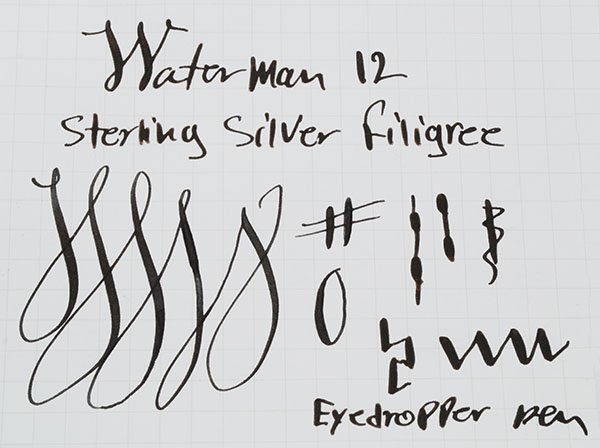 Waterman 12
Sterling Silver Filigree
Eyedropper pen